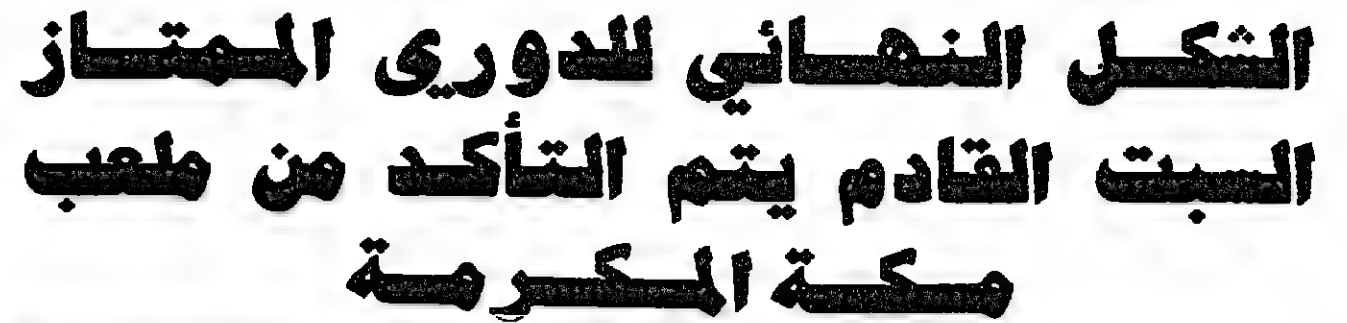 الشكل النهائي للدوري الممتاز
السبت القادم يتم التأكد من ملعب
مكة المكرمة